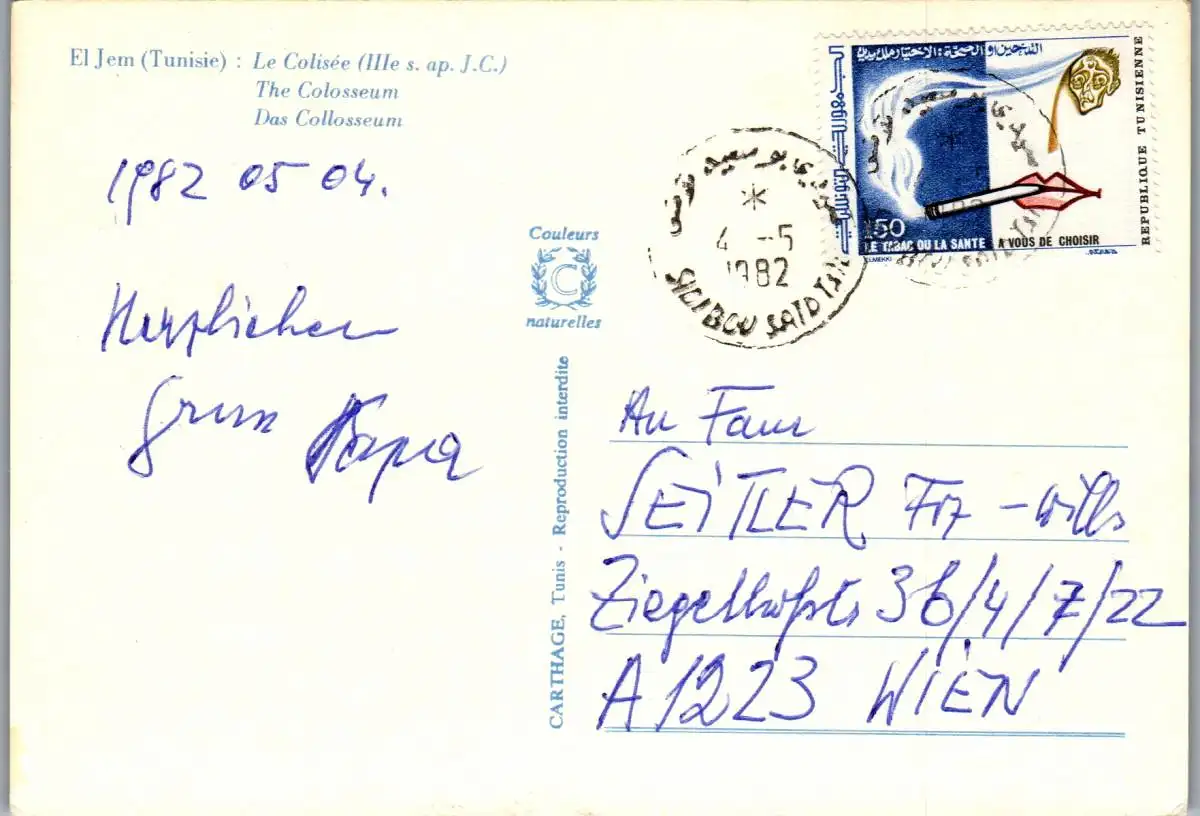 El Jem (Tunisie) : Le Colisée (IIIe s. ap. J.C.)
The Colosseum
Das Collosseum
1982 05 04.
Herzlichen
Gruss Papa
Couleurs
C
naturelles
CARTHAGE, Tunis - Reproduction interdite
سيدي بو سعيد تونس
4 -5
1982
SIDI BOU SAID
التدخين او الصحة: الاختيار ملك يديك
REPUBLIQUE TUNISIENNE
150
LE TABAC OU LA SANTE A VOUS DE CHOISIR
ELMEKKI
An Fam
SEITLER Frz - Willi
Ziegelhofstr 36/4/7/22
A 1223 WIEN